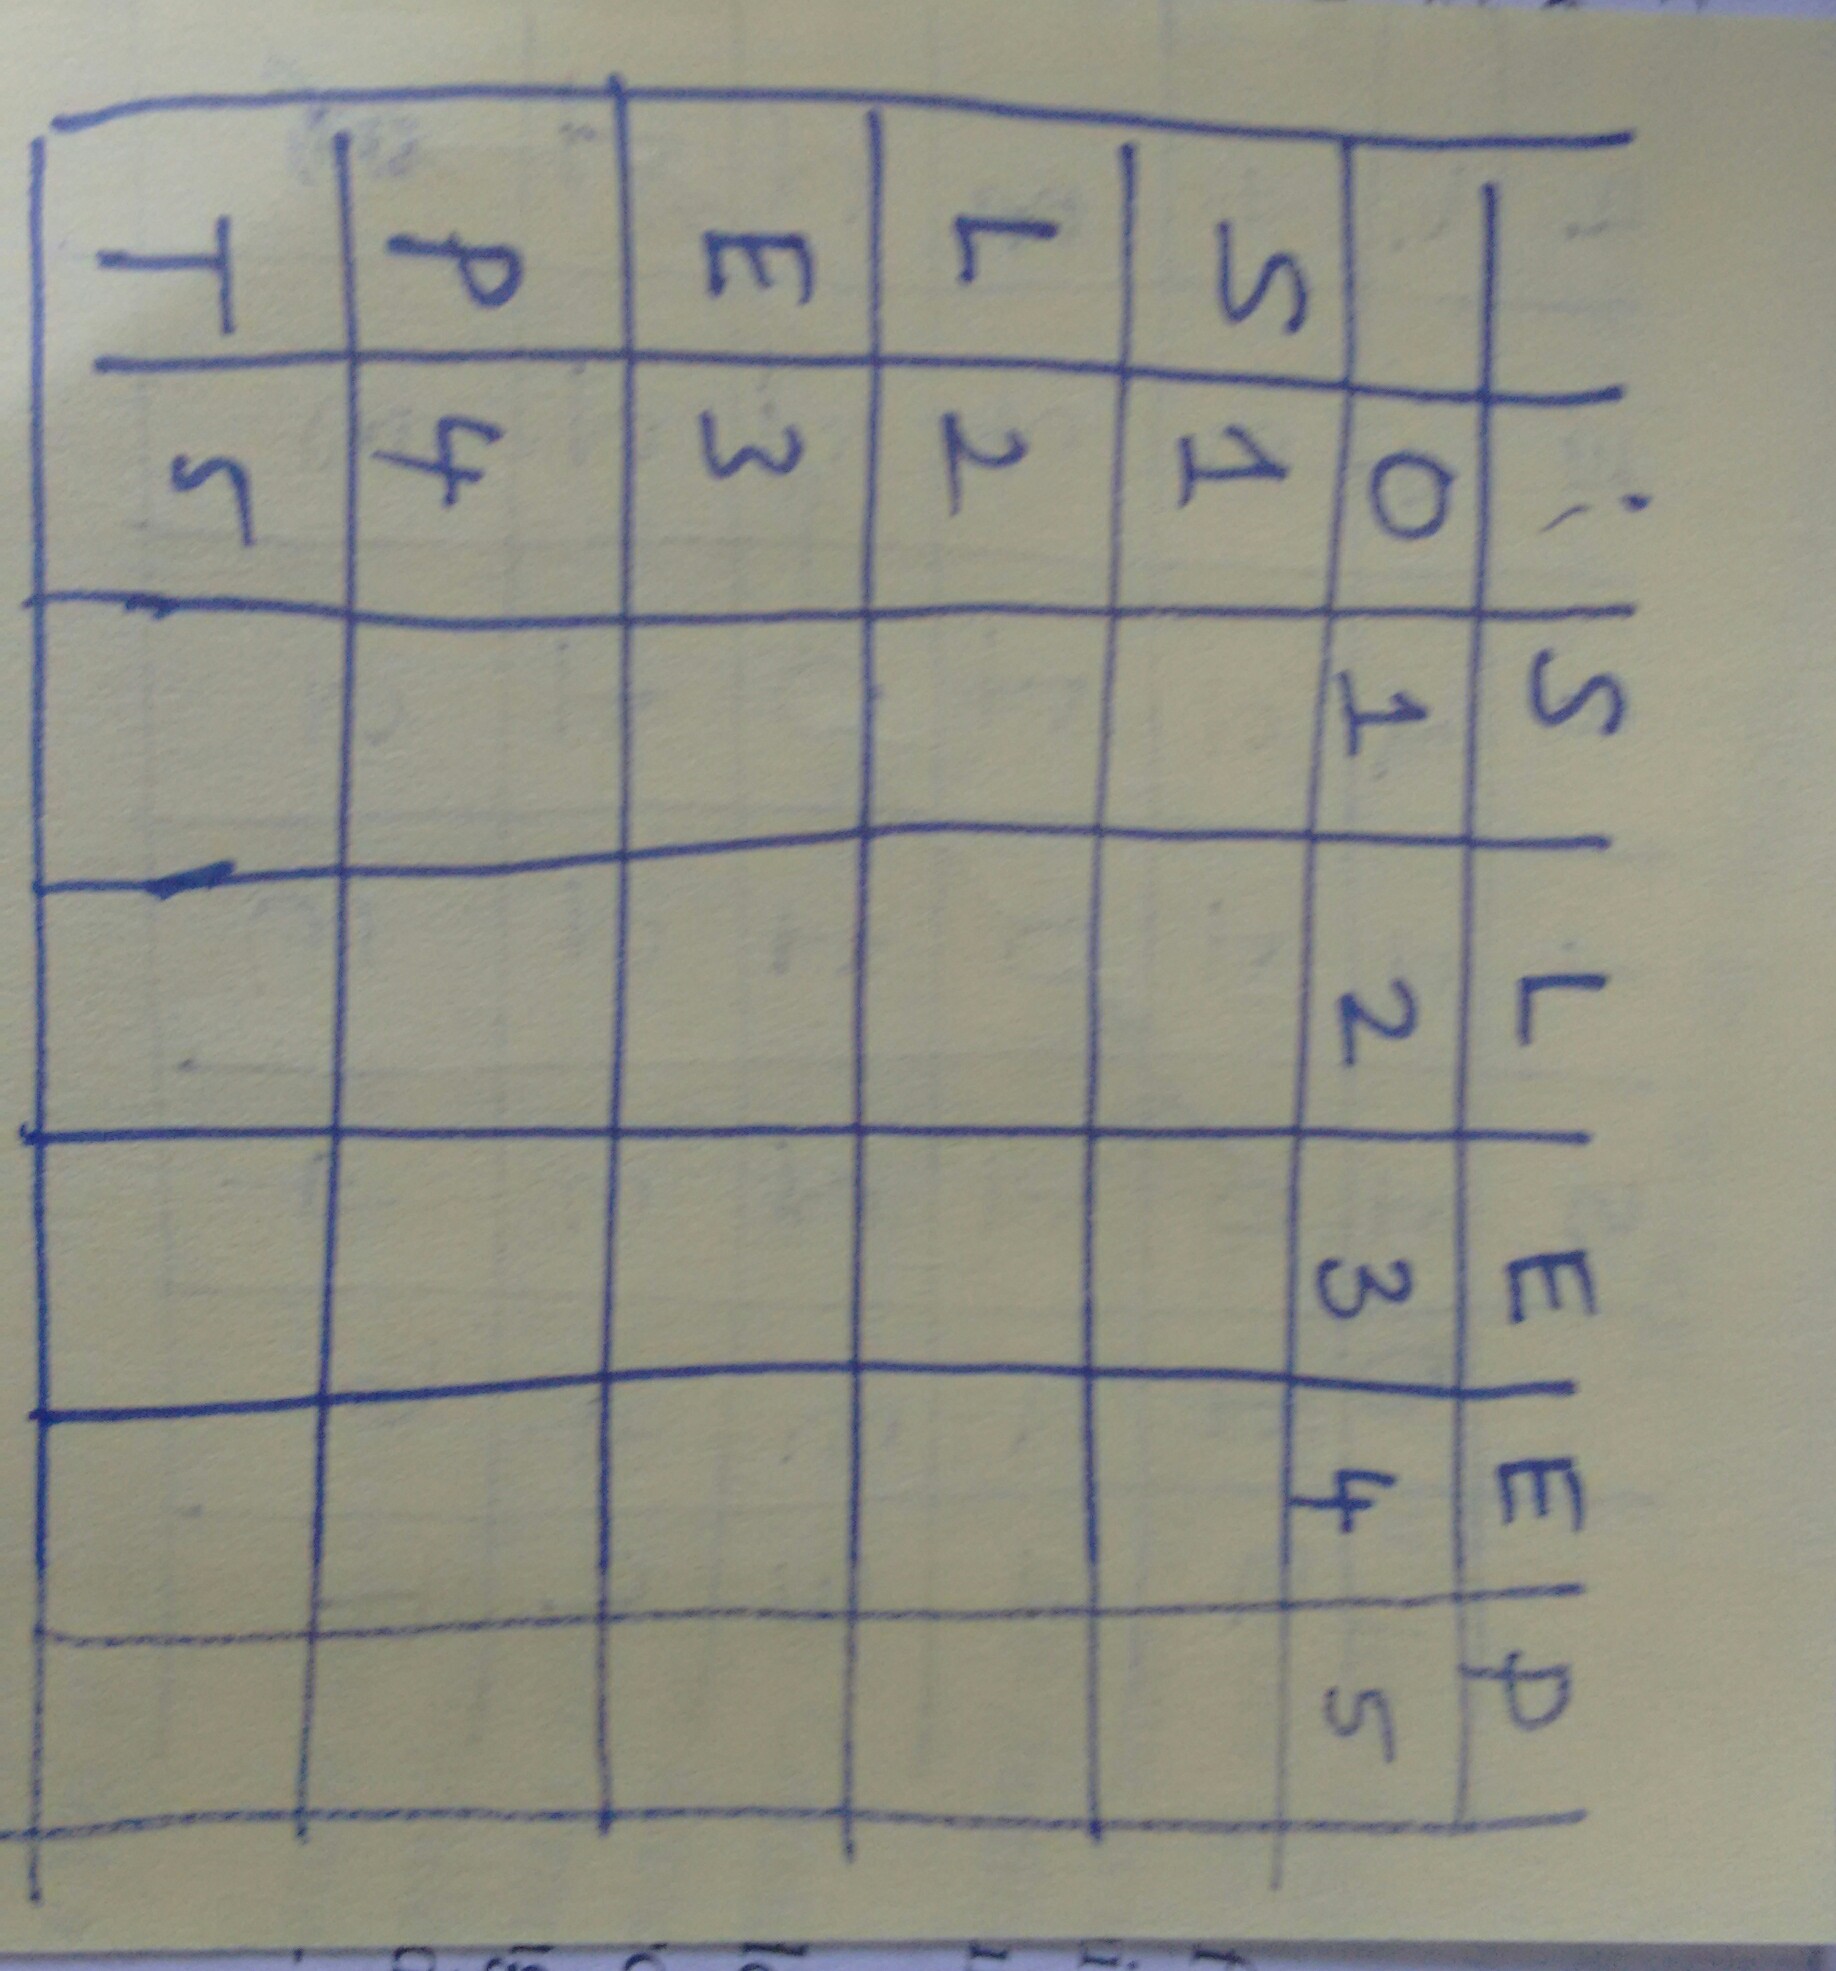 S L E E P
0 1 2 3 4 5
S 1
L 2
E 3
P 4
T 5